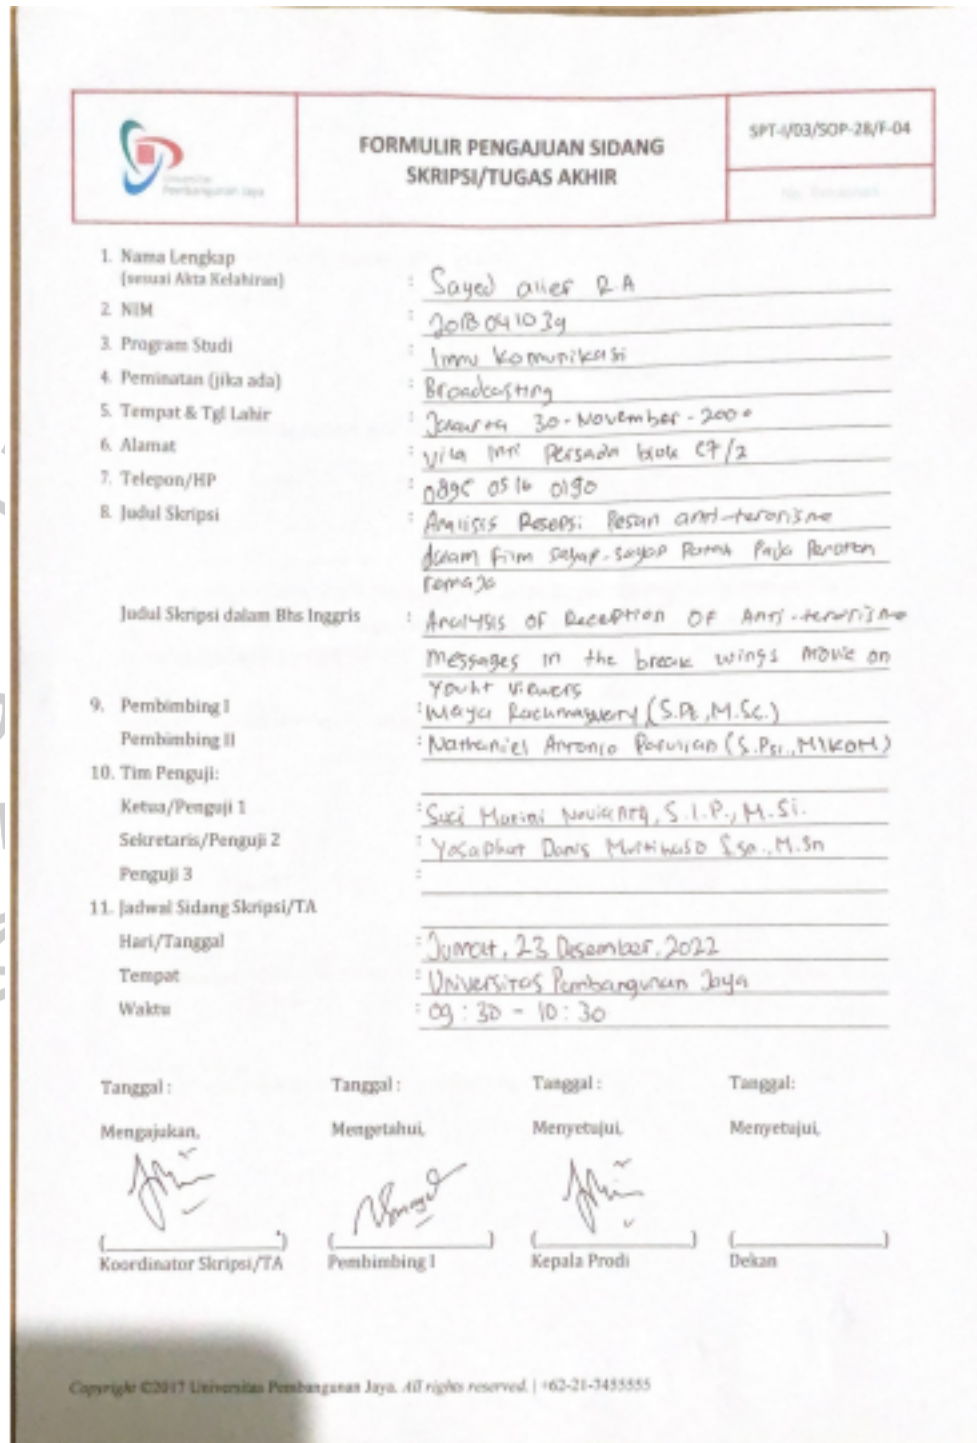 Universitas
Pembangunan Jaya
FORMULIR PENGAJUAN SIDANG
SKRIPSI/TUGAS AKHIR
SPT-I/03/SOP-28/F-04
1. Nama Lengkap
(sesuai Akta Kelahiran)
: Sayed R.A
2. NIM
: 2018041039
3. Program Studi
: Komunikasi
4. Peminatan (jika ada)
: Broadcasting
5. Tempat & Tgl Lahir
: 30-November-2000
6. Alamat
: Persada C7/2
7. Telepon/HP
: 0895 0516 0190
8. Judul Skripsi
: Analisis Resepsi Pesan anti-terorisme
dalam Film sayap-sayap Patah Pada Penonton
remaja
Judul Skripsi dalam Bhs Inggris
: Analysis OF Reception OF Anti-terorisme
messages in the break wings movie on
Viewers
9. Pembimbing I
: Maya (S.Pt., M.Sc.)
Pembimbing II
: Nathaniel Antonio Parulian (S.Psi., MIKOM)
10. Tim Penguji:
Ketua/Penguji 1
: Suci Marini Novianty, S.I.P., M.Si.
Sekretaris/Penguji 2
: Yosaphat Danis M.Sn
Penguji 3
:
11. Jadwal Sidang Skripsi/TA
Hari/Tanggal
: Jumat, 23 Desember, 2022
Tempat
: Universitas Pembangunan Jaya
Waktu
: 09:30 - 10:30
Tanggal : Tanggal : Tanggal : Tanggal:
Mengajukan, Mengetahui, Menyetujui, Menyetujui,
(                    ) (                    ) (                    ) (                    )
Koordinator Skripsi/TA Pembimbing I Kepala Prodi Dekan
Copyright ©2017 Universitas Pembangunan Jaya. All rights reserved. | +62-21-7455555